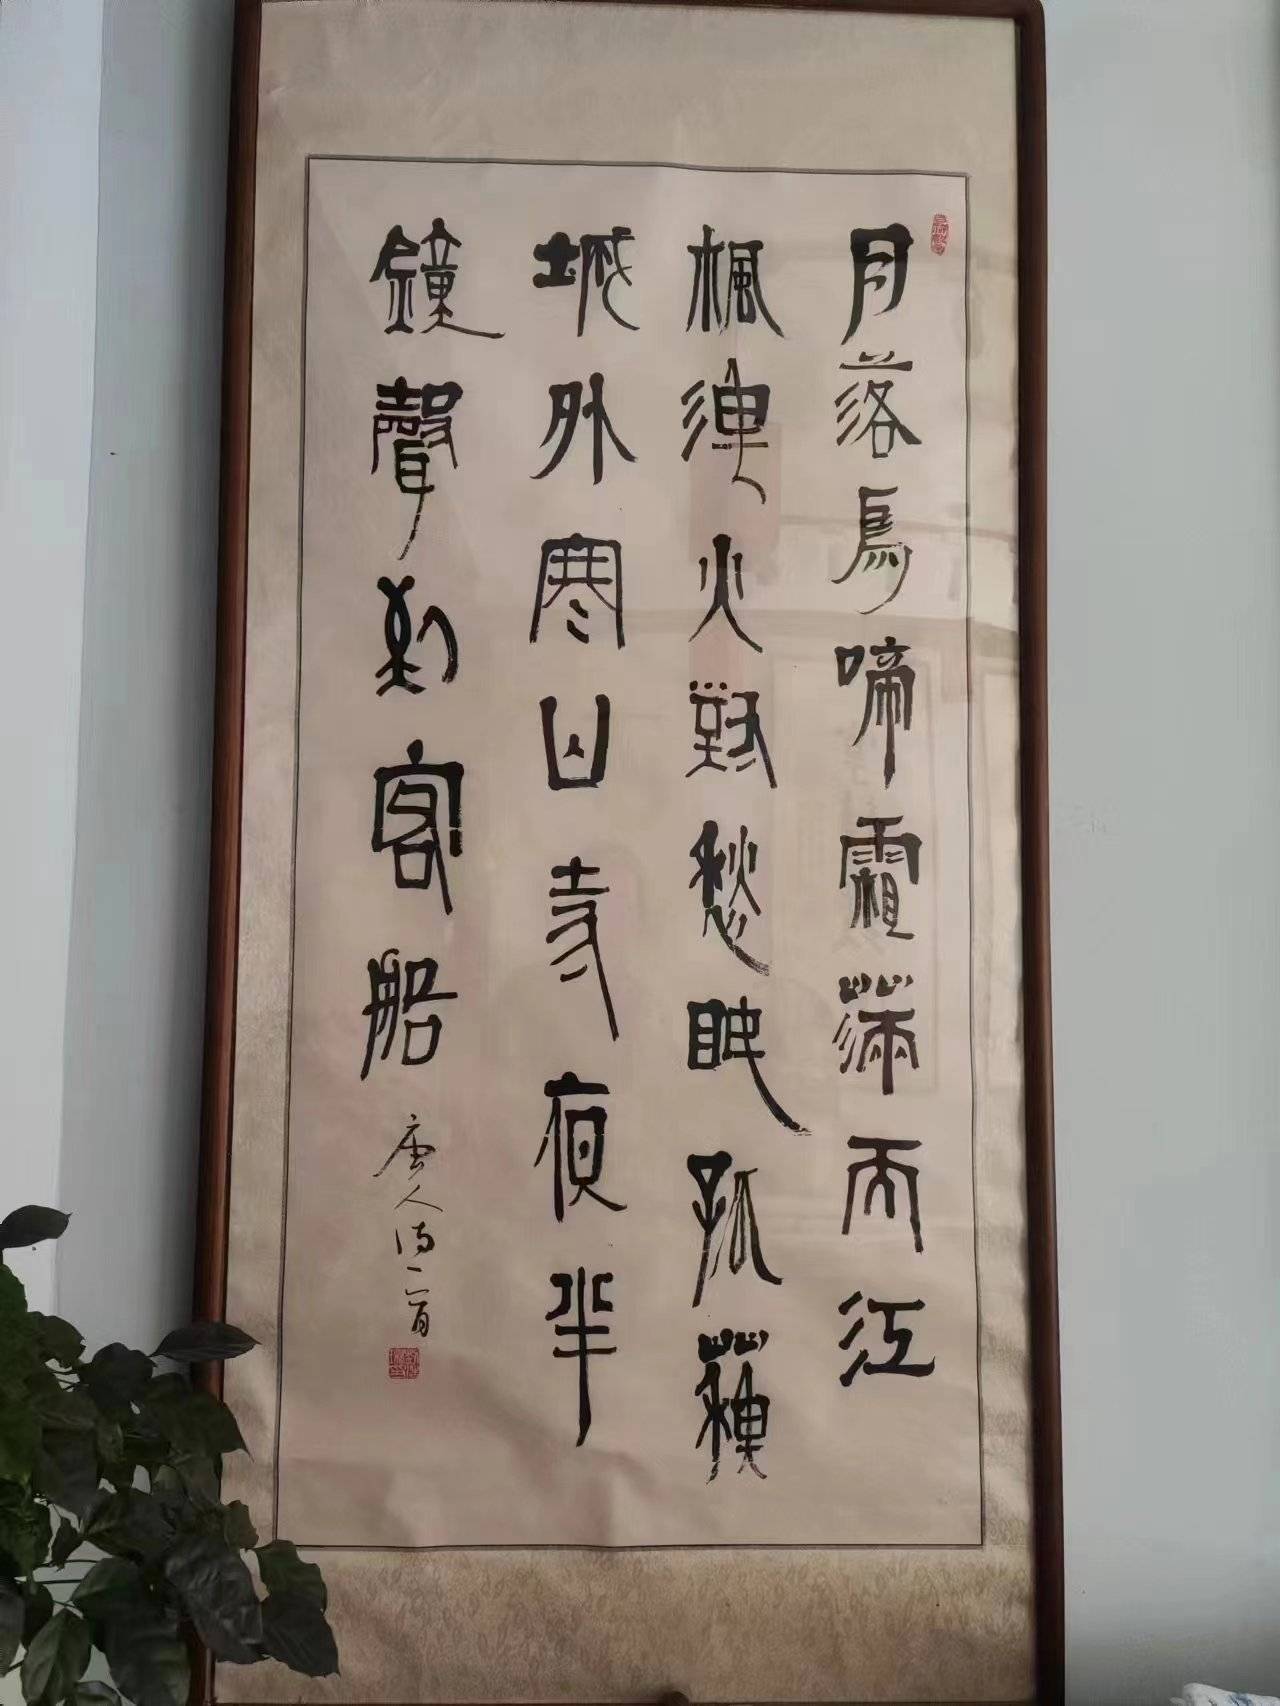 月落烏啼霜滿天江
楓漁火對愁眠孤蘇
城外寒山寺夜半
鐘聲到客船
唐人詩一首